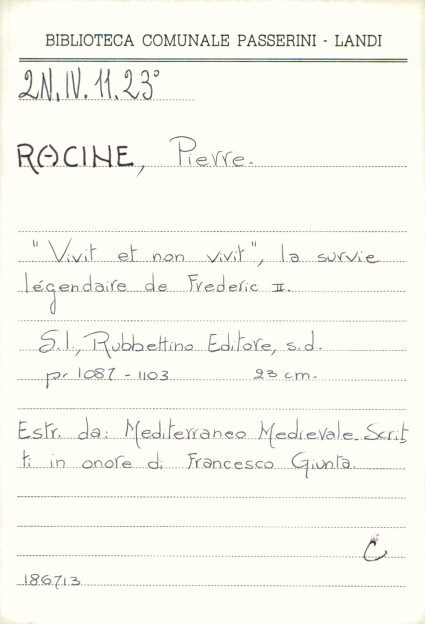 BIBLIOTECA COMUNALE PASSERINI - LANDI
2N.IV.11.23°
RACINE, Pierre.
"Vivit et non vivit", la survie
légendaire de Frederic II.
S.l., Rubbettino Editore, s.d.
p. 1087 - 1103 23 cm.
Estr. da: Mediterraneo Medievale. Scrit
ti in onore di Francesco Giunta.
C
186713